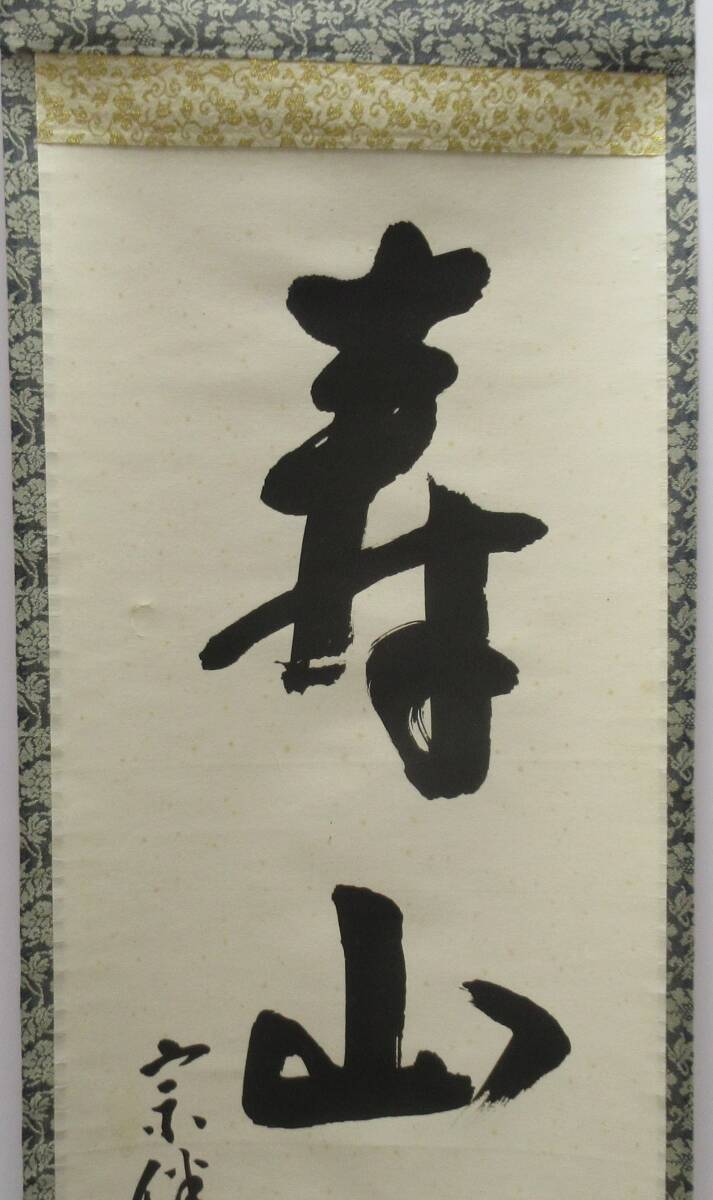 寿山
宗